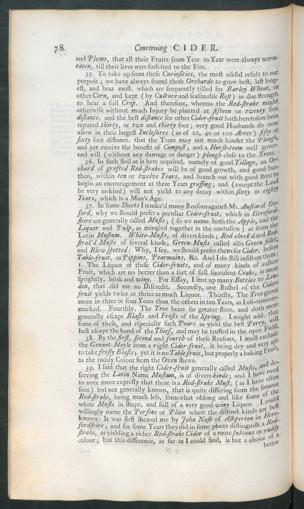 78 Concerning CIDER.
and Plums, that all their Fruits from Year to Year were always worm-
eaten, till their lives were forfeited to the Fire.
35. To take up from these Curiosities, the most useful result to our
purpose; we have always found those Orchards to grow best, last long-
est, and bear most, which are frequently tilled for Barley, Wheat, or
other Corn, and kept (by Culture and seasonable Rest) in due strength
to bear a full Crop. And therefore, whereas the Red-strake might
otherwise without much Injury be planted at fifteen or twenty foot
distance, and the best distance for other Cider-fruit hath heretofore been
reputed thirty, or two and thirty foot; very good Husbands do now
allow in their largest Inclosures (as of 20, 40 or 100 Acres) fifty or
sixty foot distance, that the Trees may not much hinder the Plough,
and yet receive the benefit of Compost; and a Horse-teem well gover-
ned will (without any damage or danger) plough close to the Trees.
36. In such Soil as is here required, namely of good Tillage, an Or-
chard of grafted Red-strakes will be of good growth, and good bear
then, within ten or twelve Years, and branch out with good store to
begin an encouragement at three Years grafting; and (except the Land
be very unkind) will not yield to any decay within sixty or eighty
Years, which is a Man's Age.
37. In some Sheets I render'd many Reasons against Mr. Austin of Ox-
ford, why we should prefer a peculiar Cider-fruit, which in Hereford-
shire are generally called Musts; (so we name both the Apple, and the
Liquor and Pulp, as mingled together in the contusion) as from the
Latin Mustum. White-Musts, of divers kinds; Red-cheek'd and Red-
strak'd Musts of several kinds; Green-Musts called also Green fillet,
and Blew-spotted: Why, I say, we should prefer them for Cider, before
Table-fruit, as Pippins, Pearmains, &c. And I do still insist on them:
1. The Liquor of these Cider-fruits, and of many kinds of austere
Fruit, which are no better than a sort of full succulent Crabs, is more
sprightly, brisk and winy. For Essay, I sent up many Bottles to Lon-
don, that did me no Discredit. Secondly, one Bushel of the Cider-
fruit yields twice or thrice as much Liquor. Thirdly, The Tree grows
more in three or four Years than the others in ten Years, as I oft-times re-
marked. Fourthly, The Tree bears far greater store, and doth more
generally escape Blasts and Frosts of the Spring. I might add, that
some of these, and especially such Pears as yield the best Perry, will
best escape the hand of the Thief, and may be trusted in the open Field.
38. By the first, second and fourth of these Reasons, I must exclude
the Gennet-Moyle from a right Cider-fruit, it being dry and very apt
to take frosty Blasts; yet it is no Table-fruit, but properly a baking Fruit,
as the ruddy Colour from the Oven shews.
39. I said that the right Cider-fruit generally called Musts, and de-
serving the Latin Name Mustum, is of divers kinds; and I have need
to note more expresly that there is a Red-strake Must, (as I have often
seen) but not generally known, that is quite differing from the famous
Red-strake, being much less, somewhat oblong and like some of the
white Musts in shape, and full of a very good winy Liquor. I could
willingly name the Persons or Place where the distinct kinds are best
known: It was first shewed me by John Nash of Ashperton in Here-
fordshire; and for some Years they did in some places distinguish a Red-
strake, as yielding a richer Red-strake Cider of a more fulvous or ruddy
colour; but this difference, as far as I could find, is but a choice of a
better